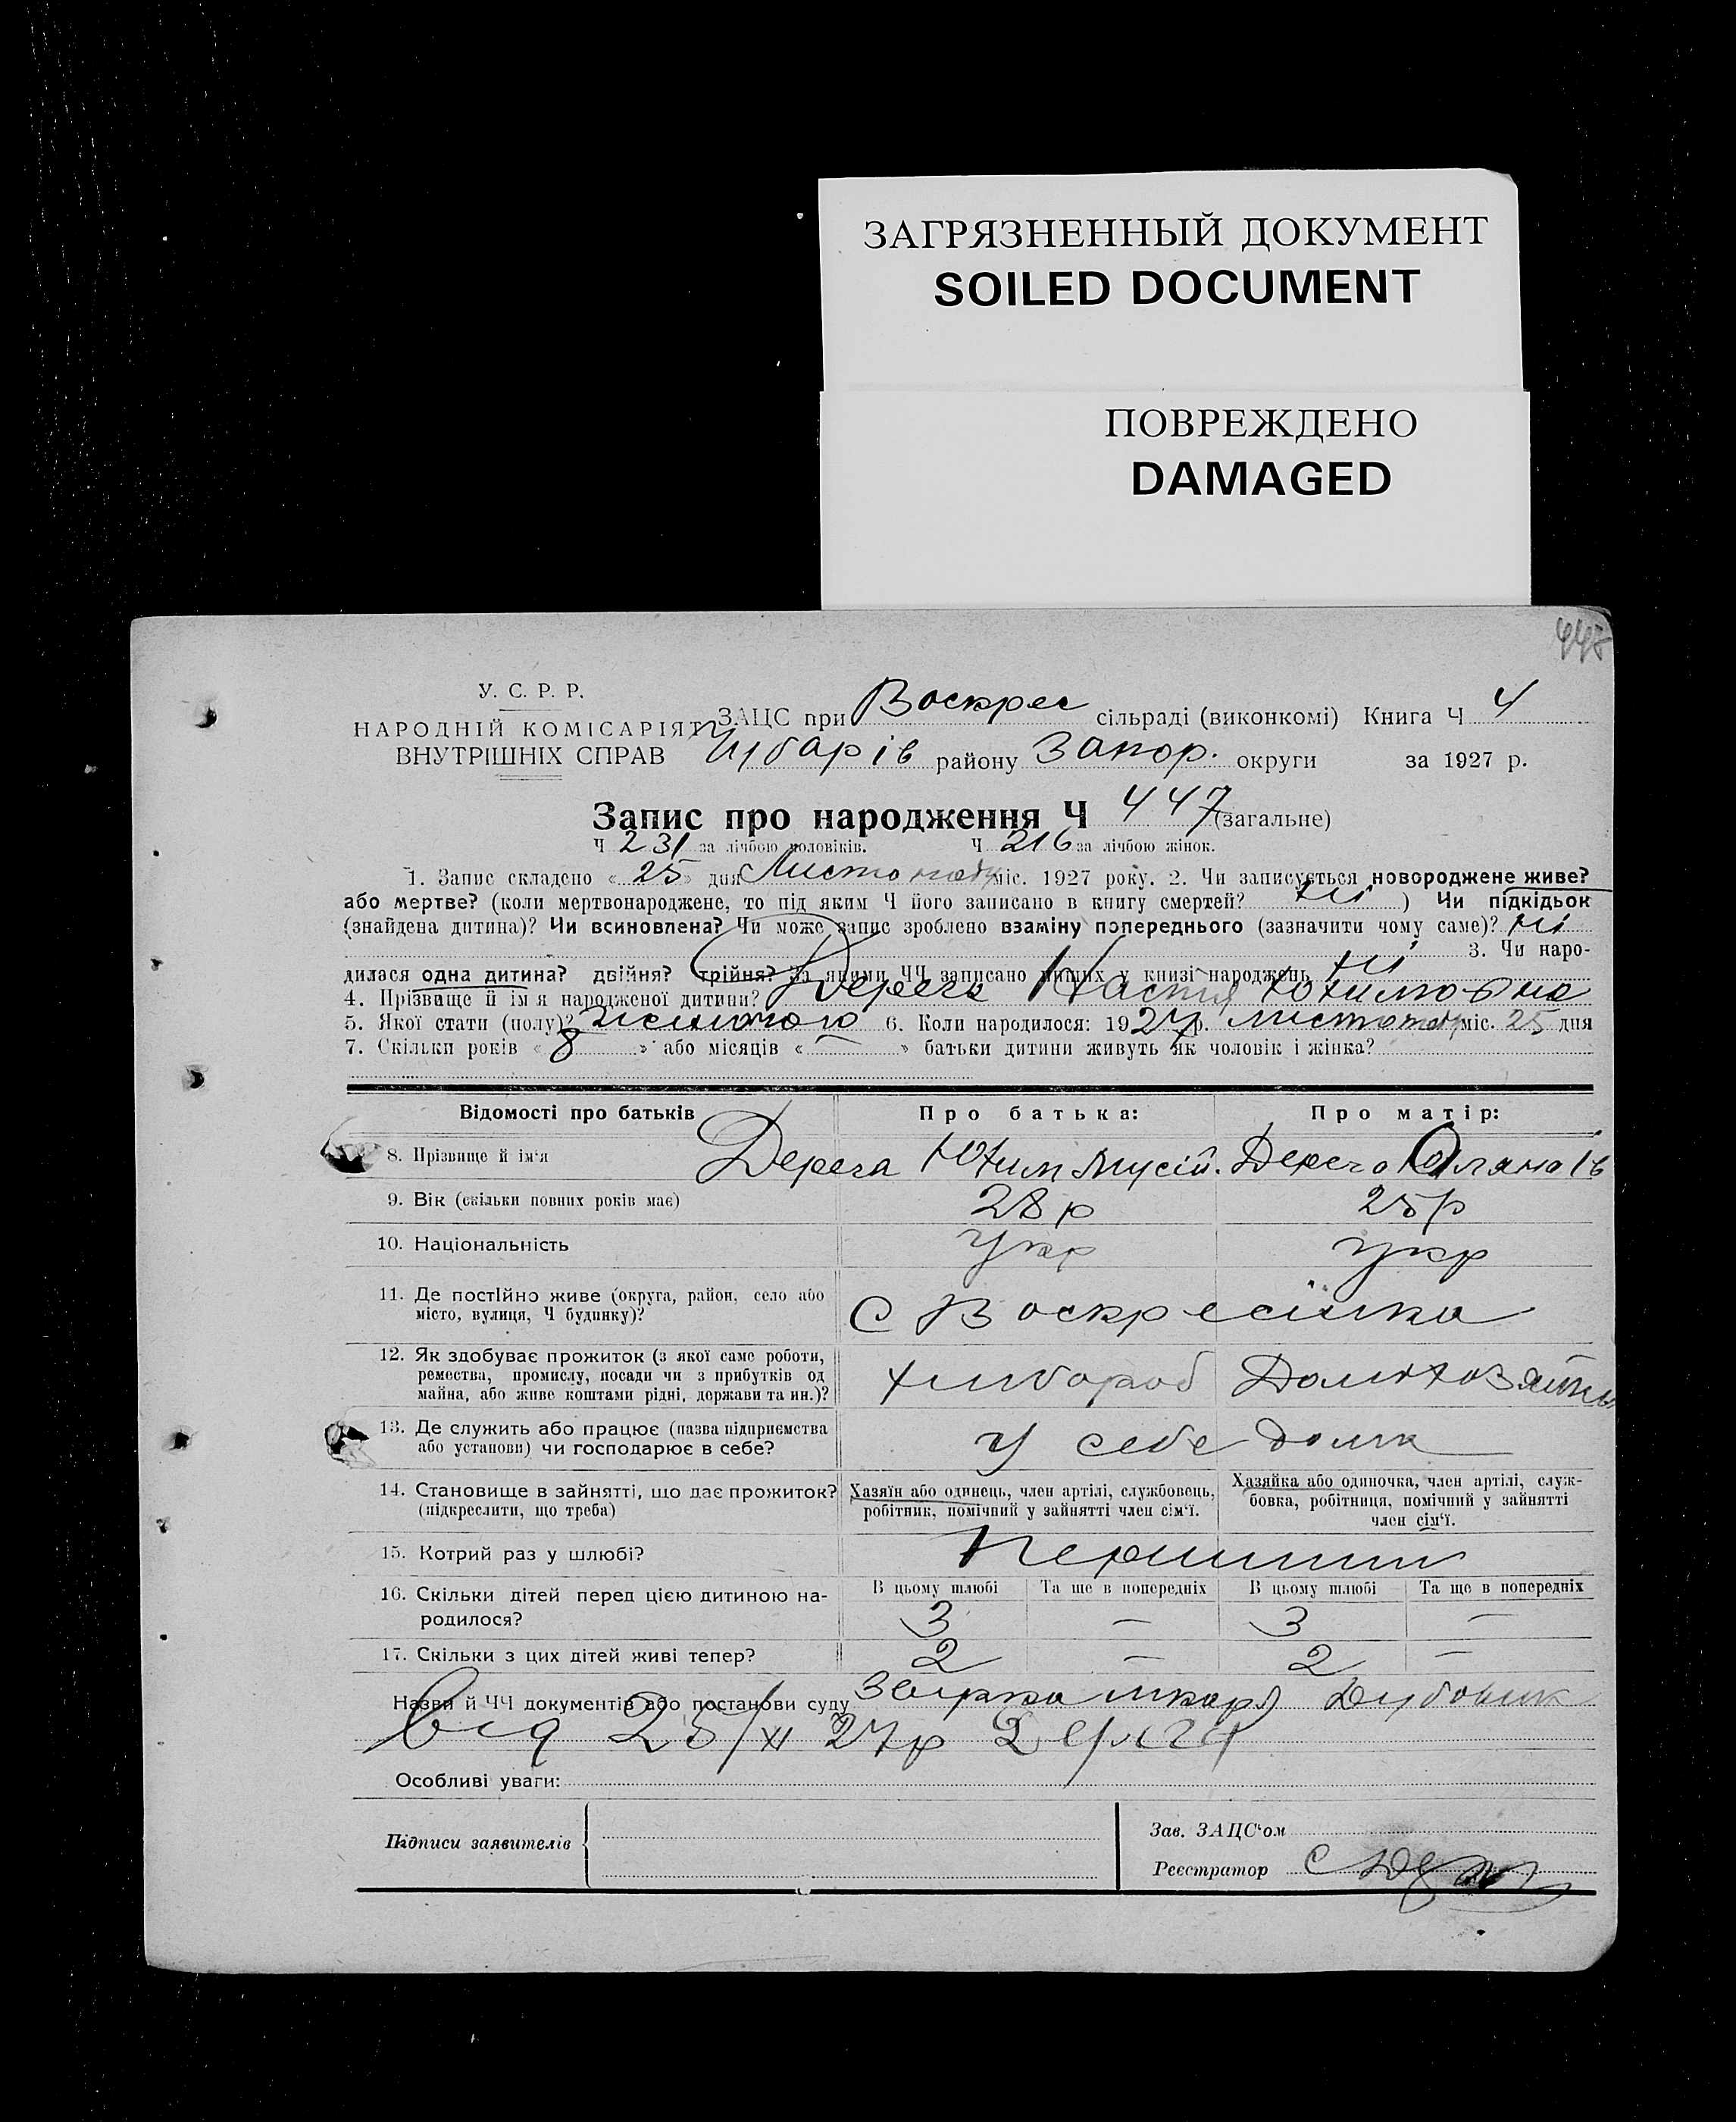 ЗАГРЯЗНЕННЫЙ ДОКУМЕНТ
SOILED DOCUMENT
ПОВРЕЖДЕНО
DAMAGED
У. С. Р. Р.
НАРОДНІЙ КОМІСАРІЯТ
ВНУТРІШНІХ СПРАВ
ЗАЦС при Воскрес сільраді (виконкомі) Книга Ч 4
Чубарів району Запор. округи за 1927 р.
Запис про народження Ч 447 (загальне)
Ч 231 за лічбою чоловіків. Ч 216 за лічбою жінок.
1. Запис складено « 25 » дня Листопаду міс. 1927 року. 2. Чи записується новороджене живе?
або мертве? (коли мертвонароджене, то під яким Ч його записано в книгу смертей? ні ) Чи підкідьок
(знайдена дитина)? Чи всиновлена? Чи може запис зроблено взаміну попереднього (зазначити чому саме)? ні
3. Чи наро-
дилася одна дитина? двійня? трійня? За якими ЧЧ записано инших у книзі народжень ні
4. Прізвище й ім'я народженої дитини? Дерега Настя Юхимовна
5. Якої стати (полу)? жіночою 6. Коли народилося: 1927 р. листопаду міс. 25 дня
7. Скільки років « 8 » або місяців « — » батьки дитини живуть як чоловік і жінка?
Відомості про батьків Про батька: Про матір:
8. Прізвище й ім'я Дерега Юхим Мусій. Дерега Уляна Ів
9. Вік (скільки повних років має) 28 р 25 р
10. Національність укр укр
11. Де постійно живе (округа, район, село або
місто, вулиця, Ч будинку)? С Воскресінка
12. Як здобуває прожиток (з якої саме роботи,
ремества, промислу, посади чи з прибутків од
майна, або живе коштами рідні, держави та ин.)? хлибороб Домохозяйка
13. Де служить або працює (назва підприємства
або установи) чи господарює в себе? У себе дома
14. Становище в зайнятті, що дає прожиток?
(підкреслити, що треба)
Хазяїн або одинець, член артілі, службовець,
робітник, помічний у зайнятті член сім'ї.
Хазяйка або одиночка, член артілі, служ-
бовка, робітниця, помічний у зайнятті
член сім'ї.
15. Котрий раз у шлюбі? Перший
16. Скільки дітей перед цією дитиною на-
родилося?
В цьому шлюбі Та ще в попередніх В цьому шлюбі Та ще в попередніх
3 — 3 —
17. Скільки з цих дітей живі тепер? 2 — 2 —
Назви й ЧЧ документів або постанови суду
від 25/XI 27р
Особливі уваги:
Підписи заявителів
Зав. ЗАЦС'ом
Реєстратор